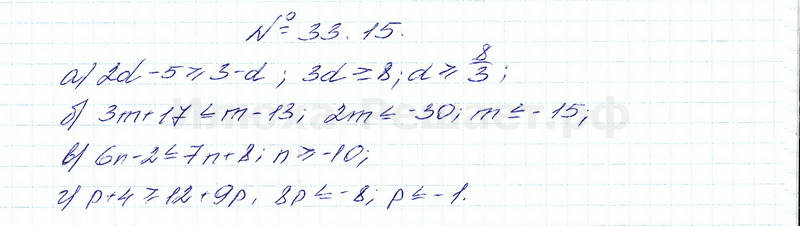 № 33.15.
а) 2d - 5 ⩾ 3 - d ; 3d ⩾ 8; d ⩾ 8/3 ;
б) 3m + 17 ⩽ m - 13; 2m ⩽ -30; m ⩽ - 15;
в) 6n - 2 ⩽ 7n + 8; n ⩾ -10;
г) p + 4 ⩾ 12 + 9p, 8p ⩽ -8; p ⩽ - 1.